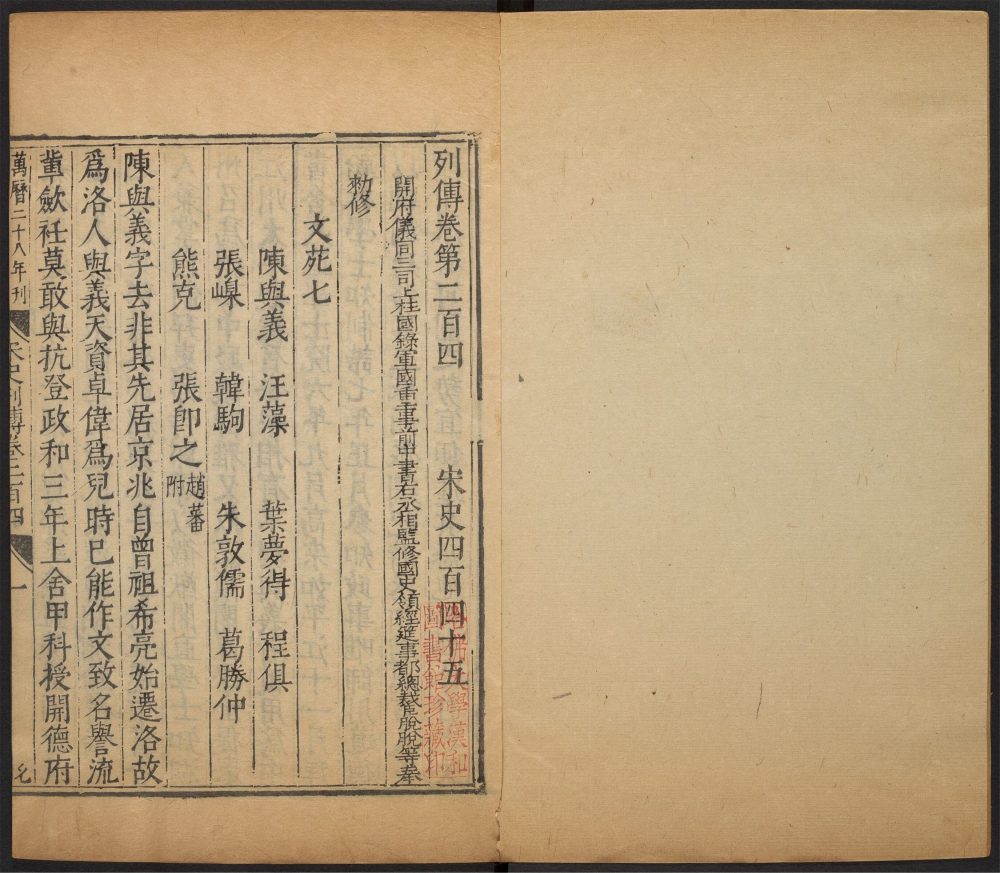 列傳卷第二百四 宋史四百四十五
開府儀同三司上柱國錄軍國重事前中書右丞相監修國史領經筵事都總裁臣脫脫等奉
勑修
文苑七
陳與義 汪藻 葉夢得 程俱
張嵲 韓駒 朱敦儒 葛勝仲
熊克 張卽之 趙蕃附
陳與義字去非其先居京兆自曾祖希亮始遷洛故
爲洛人與義天資卓偉爲兒時已能作文致名譽流
軰斂衽莫敢與抗登政和三年上舍甲科授開德府
萬曆二十八年刊 宋史列傳卷二百四 一
哈佛大學漢和
圖書館珍藏印